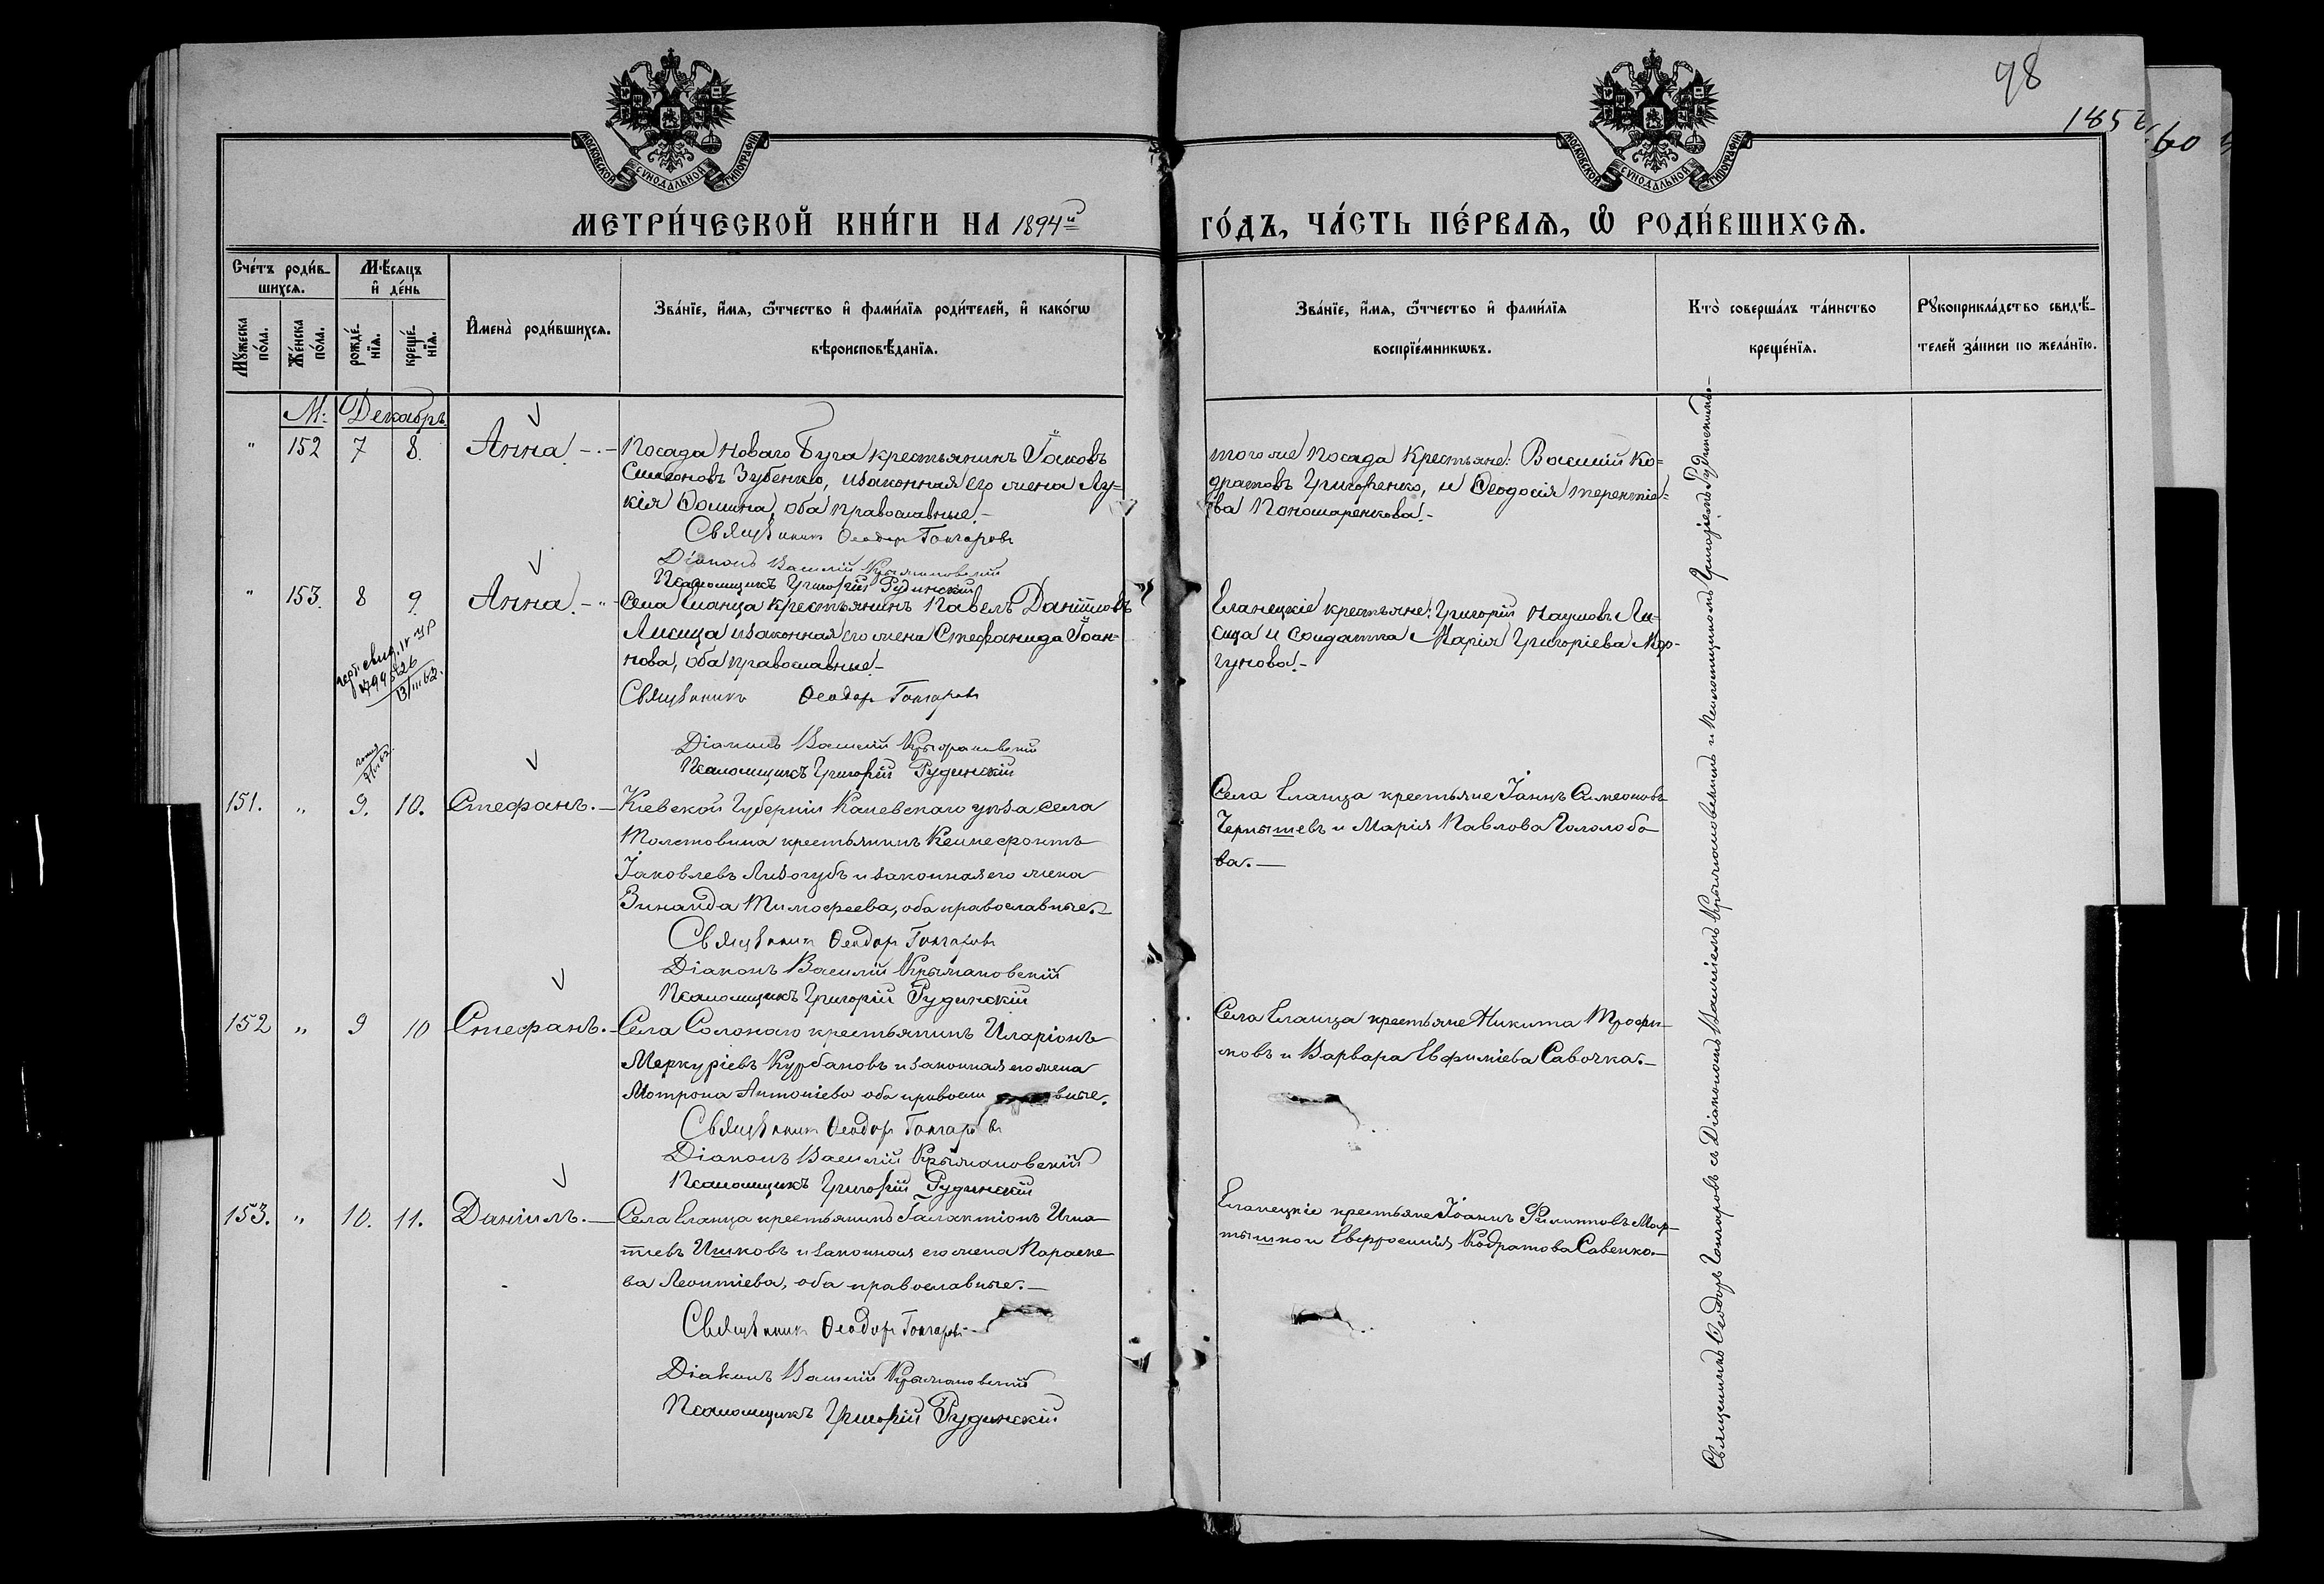 98
185
60
МОСКОВСКОЙ СѴНОДАЛЬНОЙ ТИПОГРАФІИ
МОСКОВСКОЙ СѴНОДАЛЬНОЙ ТИПОГРАФІИ
МЕТРИ́ЧЕСКОЙ КНИ́ГИ НА 1894й ГО́ДЪ, ЧА́СТЬ ПЕ́РВАѦ, Ѽ РОДИ́ВШИХСѦ.
Сче́тъ роди́в-
шихсѧ.
Мꙋ́жеска по́ла.
Же́нска по́ла.
Мѣ́сѧцъ
и҆ де́нь
рожде́-
нїѧ.
креще́-
нїѧ.
И҆мена̀ роди́вшихсѧ.
Зва́нїе, и҆́мѧ, ѻ҆́тчество и҆ фами́лїѧ роди́телей, и҆ како́гѡ
вѣроисповѣ́данїѧ.
Зва́нїе, и҆́мѧ, ѻ҆́тчество и҆ фами́лїѧ
воспрїе́мникѡвъ.
Кто̀ соверша́лъ та́инство
креще́нїѧ.
Рꙋкоприкла́дство свидѣ́-
телей за́писи по жела́нїю.
М: Декабрь
" 152 7 8. Анна.-.-
Посада Новаго Буга крестьянинъ Іаковъ
Симеоновъ Зубенко, и законная его жена Лу=
кія Ѳомина, оба православные.-
Священникъ Ѳеодоръ Гончаровъ
Діаконъ Василій Крыжановскій
Псаломщикъ Григорій Рудинскій
того же посада крестьяне: Василій Ко=
дратовъ Григоренко, и Ѳеодосія Терентіе=
ва Пономаренкова.-
" 153. 8 9. Анна.-"-
Села Еланца крестьянинъ Павелъ Даніиловъ
Лисица и законная его жена Стефанида Іоан-
нова, оба православные.-
Священникъ Ѳеодоръ Гончаровъ
Діаконъ Василій Крыжановскій
Псаломщикъ Григорій Рудинскій
Еланецкіе крестьяне: Григорій Наумовъ Ли-
сица и солдатка Марія Григоріева Мор-
гунова.-
13/III 62.
151. " 9. 10. Стефанъ.-
Кіевской Губерніи Каневскаго уѣз. села
Толстовина крестьянинъ Ксенефонтъ
Іаковлевъ Лизогубъ и законная его жена
Зинаида Тимофеева, оба православные.-
Священникъ Ѳеодоръ Гончаровъ
Діаконъ Василій Крыжановскій
Псаломщикъ Григорій Рудинскій
Села Еланца крестьяне Іоаннъ Симеоновъ
Чернышевъ и Марія Павлова Гололобо
ва.-
152 " 9 10 Стефанъ.-
Села Солонаго крестьянинъ Иларіонъ
Меркуріевъ Курбановъ и законная его жена
Мотрона Антоніева оба правосла вные.
Священникъ Ѳеодоръ Гончаровъ
Діаконъ Василій Крыжановскій
Псаломщикъ Григорій Рудинскій
Села Еланца крестьяне Никита Трофи-
мовъ и Варвара Евфиміева Савочка.-
153. " 10. 11. Даніилъ.-
Села Еланца крестьянинъ Галактіонъ Игна-
тіевъ Ишковъ и законная его жена Параске
ва Леонтіева, оба православные.-
Священникъ Ѳеодоръ Гончаровъ
Діаконъ Василій Крыжановскій
Псаломщикъ Григорій Рудинскій
Еланецкіе крестьяне Іоаннъ Филипповъ Мар-
тышко и Евфросинія Кодратова Савенко.-
Священникъ Ѳеодоръ Гончаровъ съ Діакономъ Василіемъ Крыжановскимъ и Псаломщикомъ Григоріемъ Рудинскимъ.-